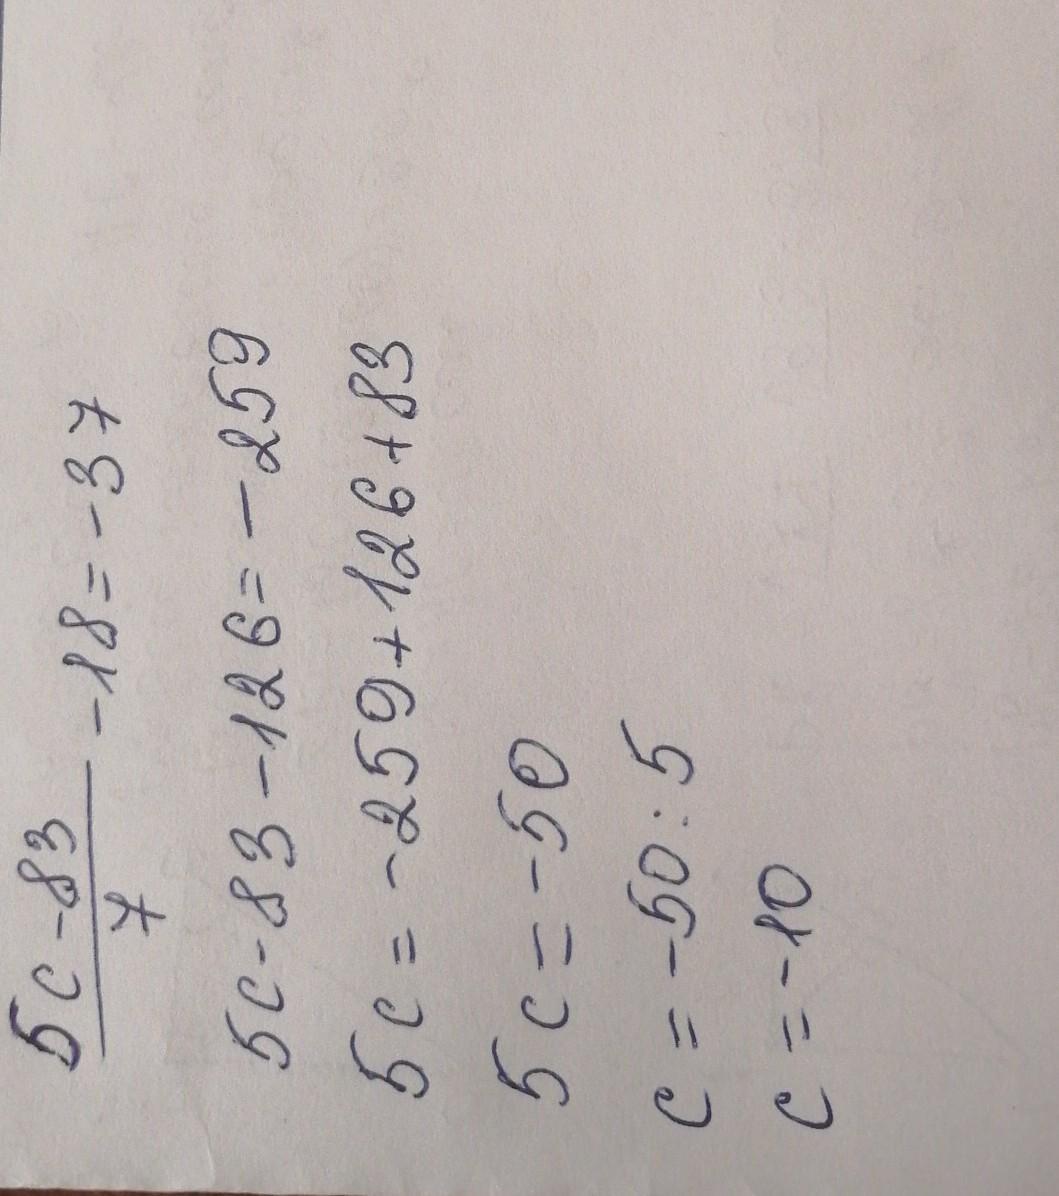 5c-83/7 -18=-37
5c-83-126=-259
5c=-259+126+83
5c=-50
c=-50:5
c=-10